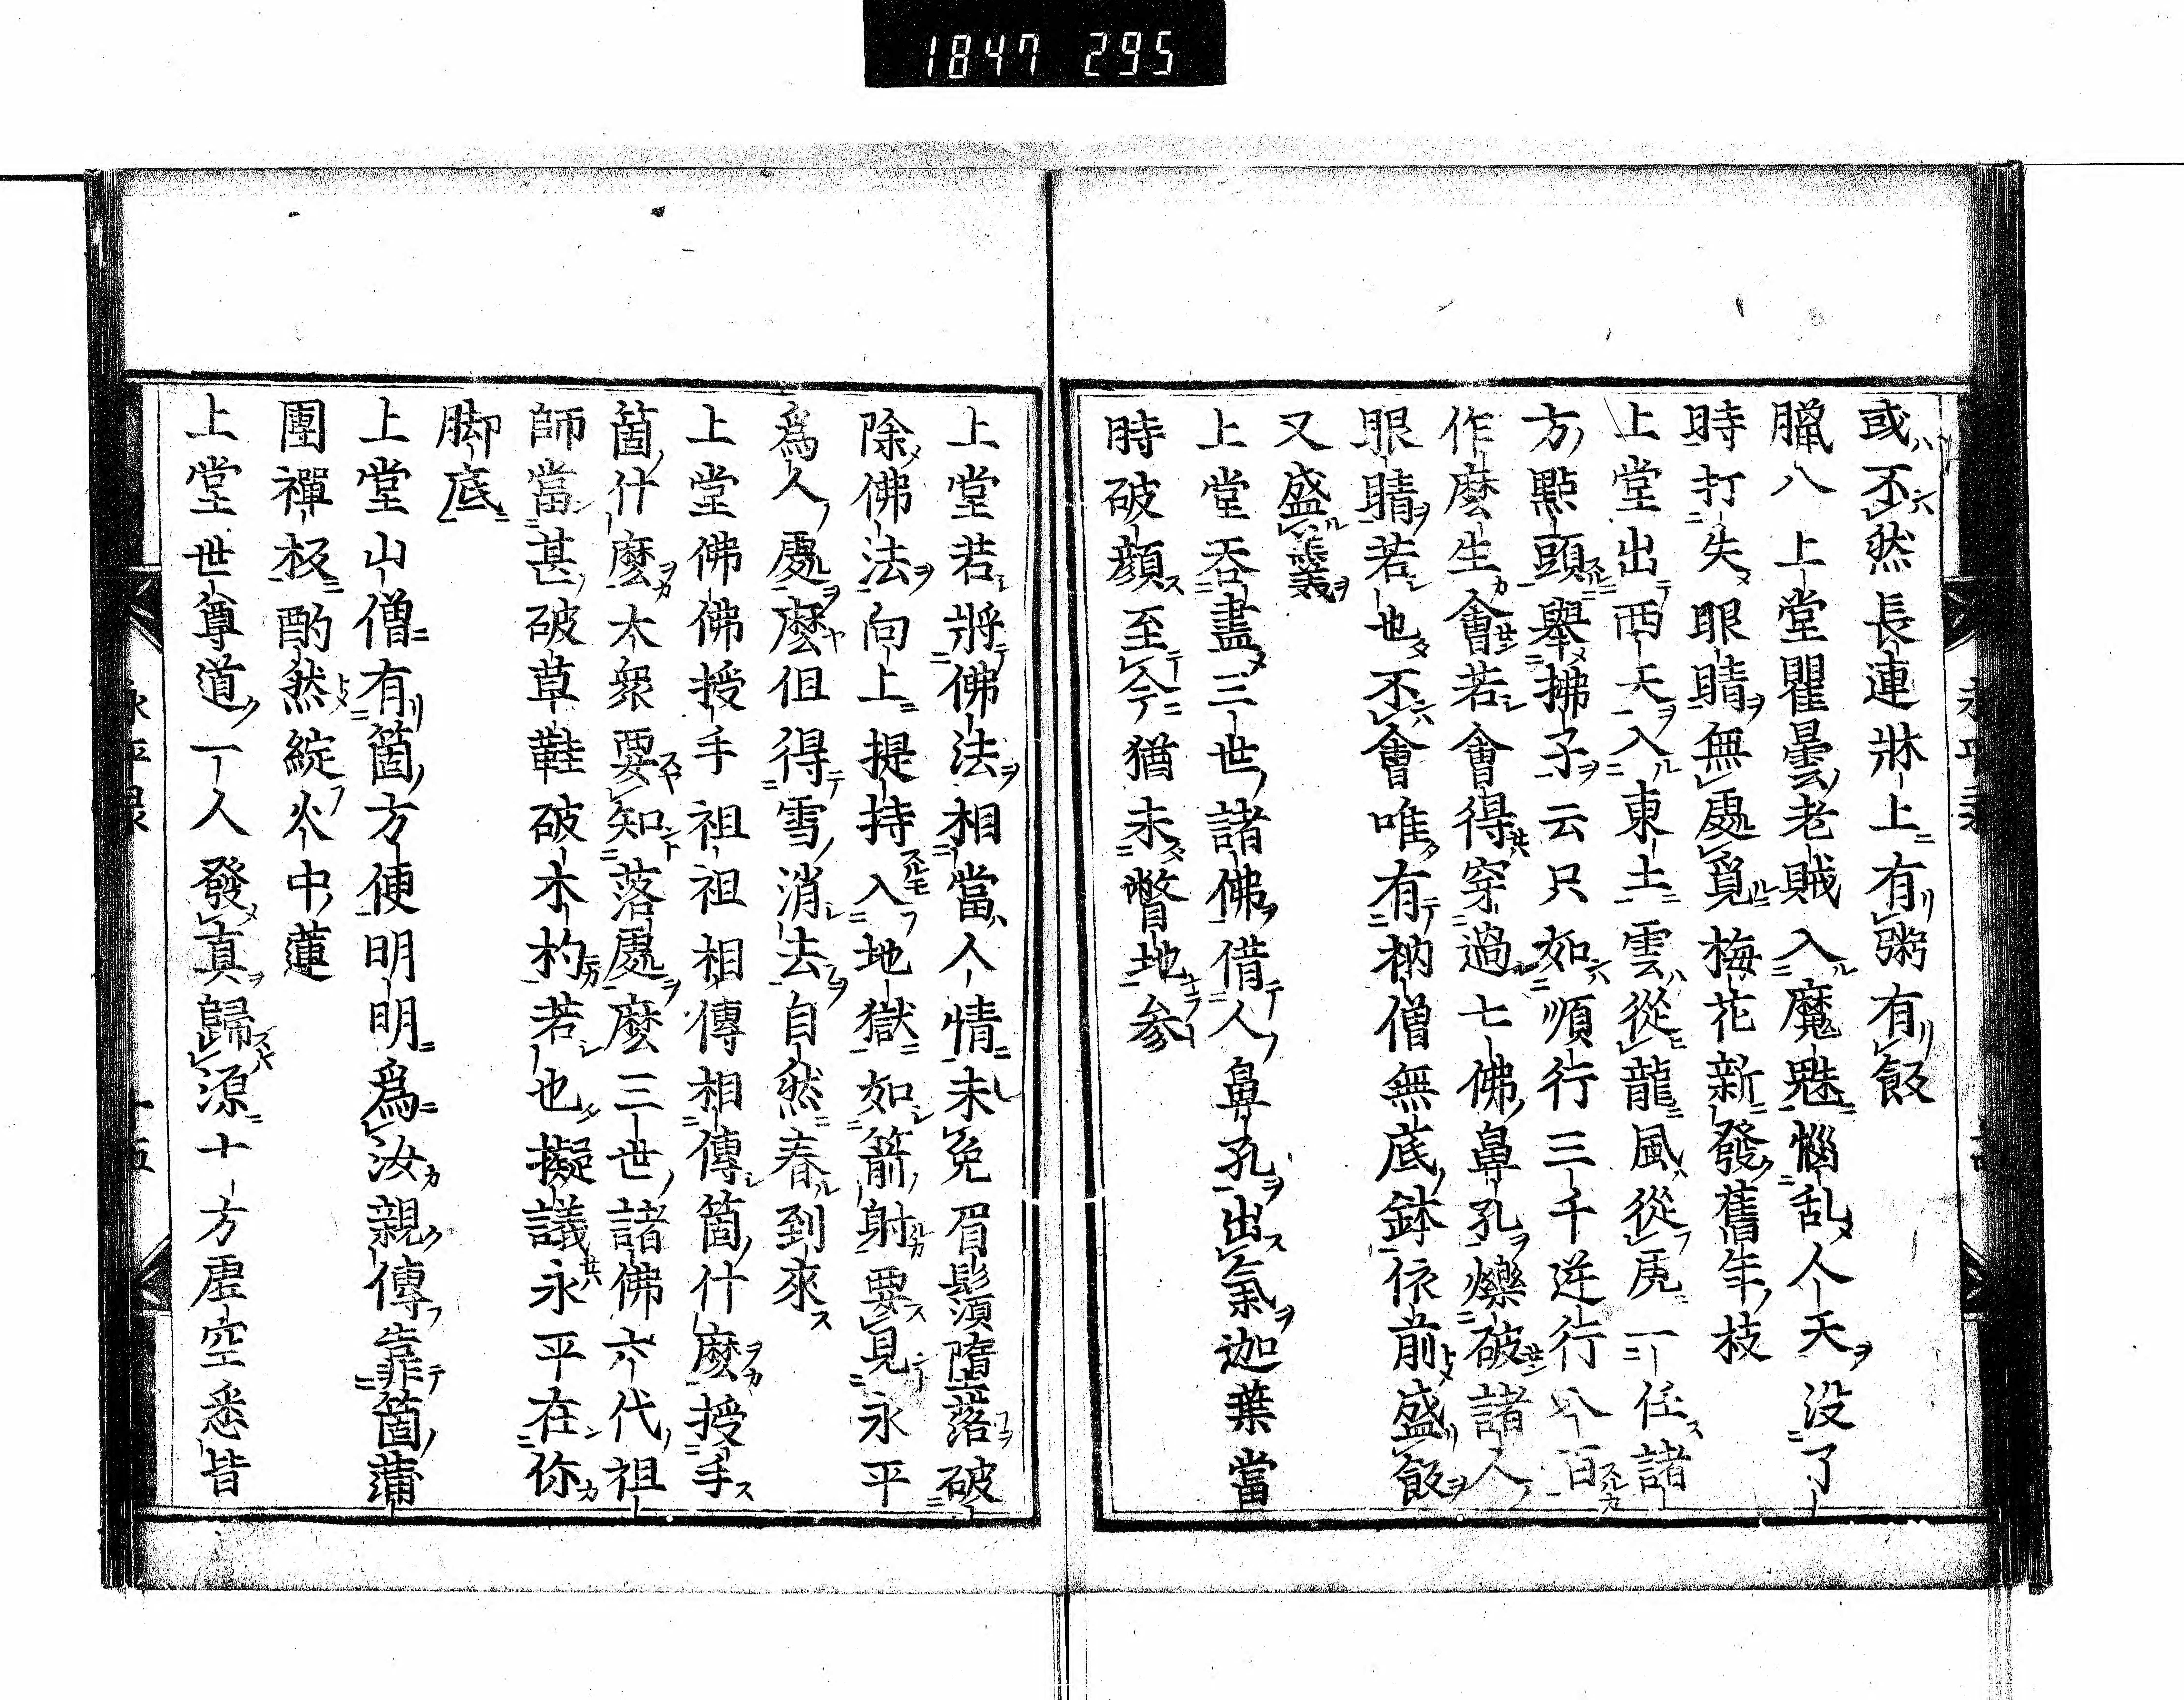 1847 295
或不然長連牀上有粥有飯
臘八上堂瞿曇老賊入魔魅惱乱人天没了
時打失眼睛無處覓梅花新發舊年枝
上堂出西天入東土雲從龍風從虎一任諸
方點頭舉拂子云只如順行三千逆行八百
作麼生會若會得穿過七佛鼻孔爍破諸人
眼睛若也不會唯有衲僧無底鉢依前盛飯
又盛羹
上堂吞盡三世諸佛借人鼻孔出氣迦葉當
時破顔至今猶未瞥地参
上堂若將佛法相當人情未免眉鬚墮落破
除佛法向上提持入地獄如箭射要見永平
爲人處麼但得雪消去自然春到來
上堂佛佛授手祖祖相傳相傳箇什麼授手
箇什麼大衆要知落處麼三世諸佛六代祖
師當甚破草鞋破木杓若也擬議永平在你
脚底
上堂山僧有箇方便明明爲汝親傳靠箇蒲
團禪板酌然綻火中蓮
上堂世尊道一人發真歸源十方虚空悉皆